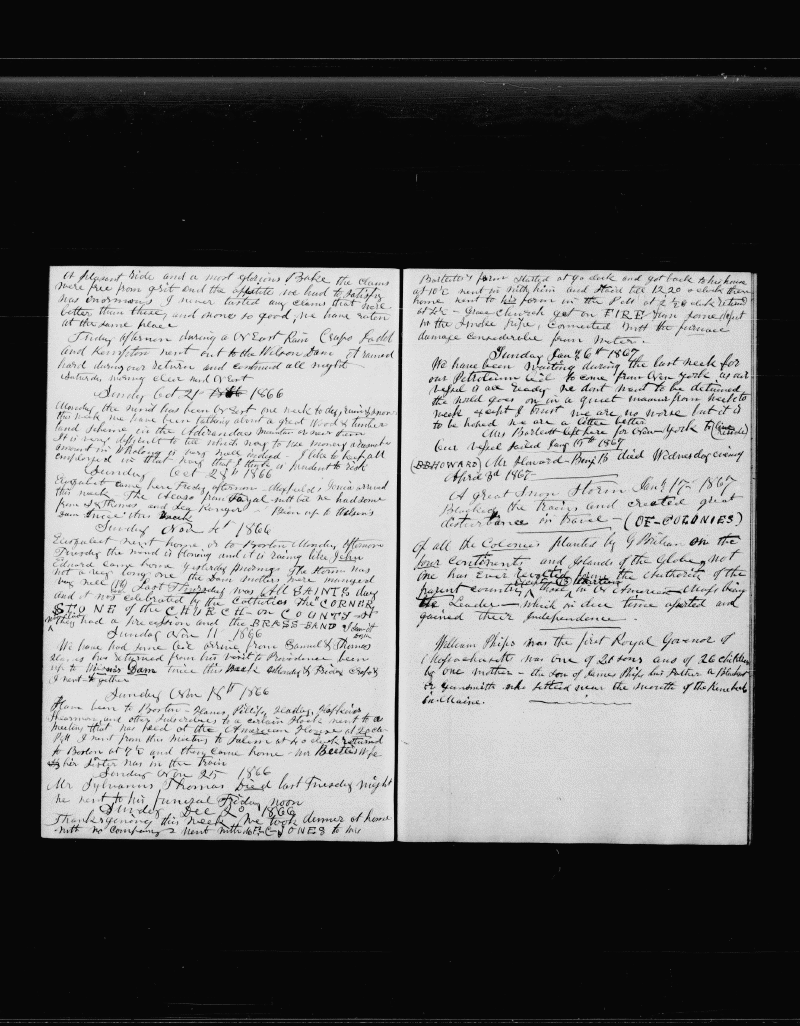 A Pleasant Ride and a most glorious Bake the clams
were free from grit and the appetite we had to satisfy
was enormous I never tasted any clams that were
better than these, and none so good, we have eaten
at the same place
Friday afternoon during a N East Rain Crapo
and Kempton went out to the Watson Dam it rained
hard during our return and continued all night
Saturday morning clear wind N East
Sunday Oct 21st 1866
Monday, the wind has been N East one week to day
this week we have been talking about a great Wood & timber
land scheme in the Adirondacs
It is very difficult to tell which way to use money
amount in Whaling is very much I like to keep all
employed in that way that I think is prudent to risk
Sunday Oct 28th 1866
Elizabeth came here Friday afternoon Mayfield's
this week The from Fayal with we had some
from and up to Watsons
Dam twice this week
Sunday Nov 4th 1866
Elizabeth went home or to Boston Monday afternoon
Tuesday the wind is blowing and it is raining like
Edward came home yesterday The Storm was
not a very long one the Dam matters were managed
very well last Thursday was All SAINTS day
and it was celebrated by the Catholics the CORNER
STONE of the CHURCH on COUNTY St
they had a procession and the BRASS BAND
Sunday Nov 11th 1866
We have had some arrive from Samuel & Thomas
has returned from his visit to Providence been
up to Dam twice this Week & Friday Crapo &
I went together
Sunday Nov 18th 1866
Have been to Boston James Phillips,
and other Subscribers to a certain Stock went to a
meeting that was held at the American House at
I went from this meeting to Salem at 4 o clock returned
to Boston at 7 and then came home wife
& her sister was in the train
Sunday Nov 25 1866
Mr Sylvanus Thomas Died last Tuesday night
we went to his funeral Friday noon
Sunday Dec 2d 1866
Thanksgiving this week, We took dinner at home
with no company & went with JONES to
Bartlett's farm started at 9 o clock and got back to his house
at went in with him and staid till 12.20 o clock then
home went to his farm in the P.M. at 2 1/2 o clock
at Grace Church got on FIRE from some defect
in the smoke pipe, connected with the furnace
damage considerable from water.
Sunday Jany 6th 1867
We have been waiting during the last week for
our Petroleum Oil to come from New York as our
vessel is all ready we dont want to be detained
the world goes on in a quiet manner from week to
week except I trust we are no worse but it is
to be hoped we are a little better
Mrs Bartlett left here for New York to
Our vessel sailed Jany 15th 1867
(DB HOWARD) Mr Howard Benj B died Wednesday evening
April 3d 1867
A great Snow Storm Jany 17th 1867
Blocked the trains and created great
disturbance in travel (OF COLONIES)
Of all the Colonies planted by G Britian on the
four Continents and Islands of the Globe, not
one has Ever the Authority of the
parent country those in N America Mass being
the Leader which in due time asserted and
gained their Independence.
William Phips was the first Royal Govenor of
Massachusetts was one of 20 sons and of 26 children
by one mother the son of James Phips his Father a Blacksmith
or Gunsmith who settled near the mouth of the Kennebec
in Maine.